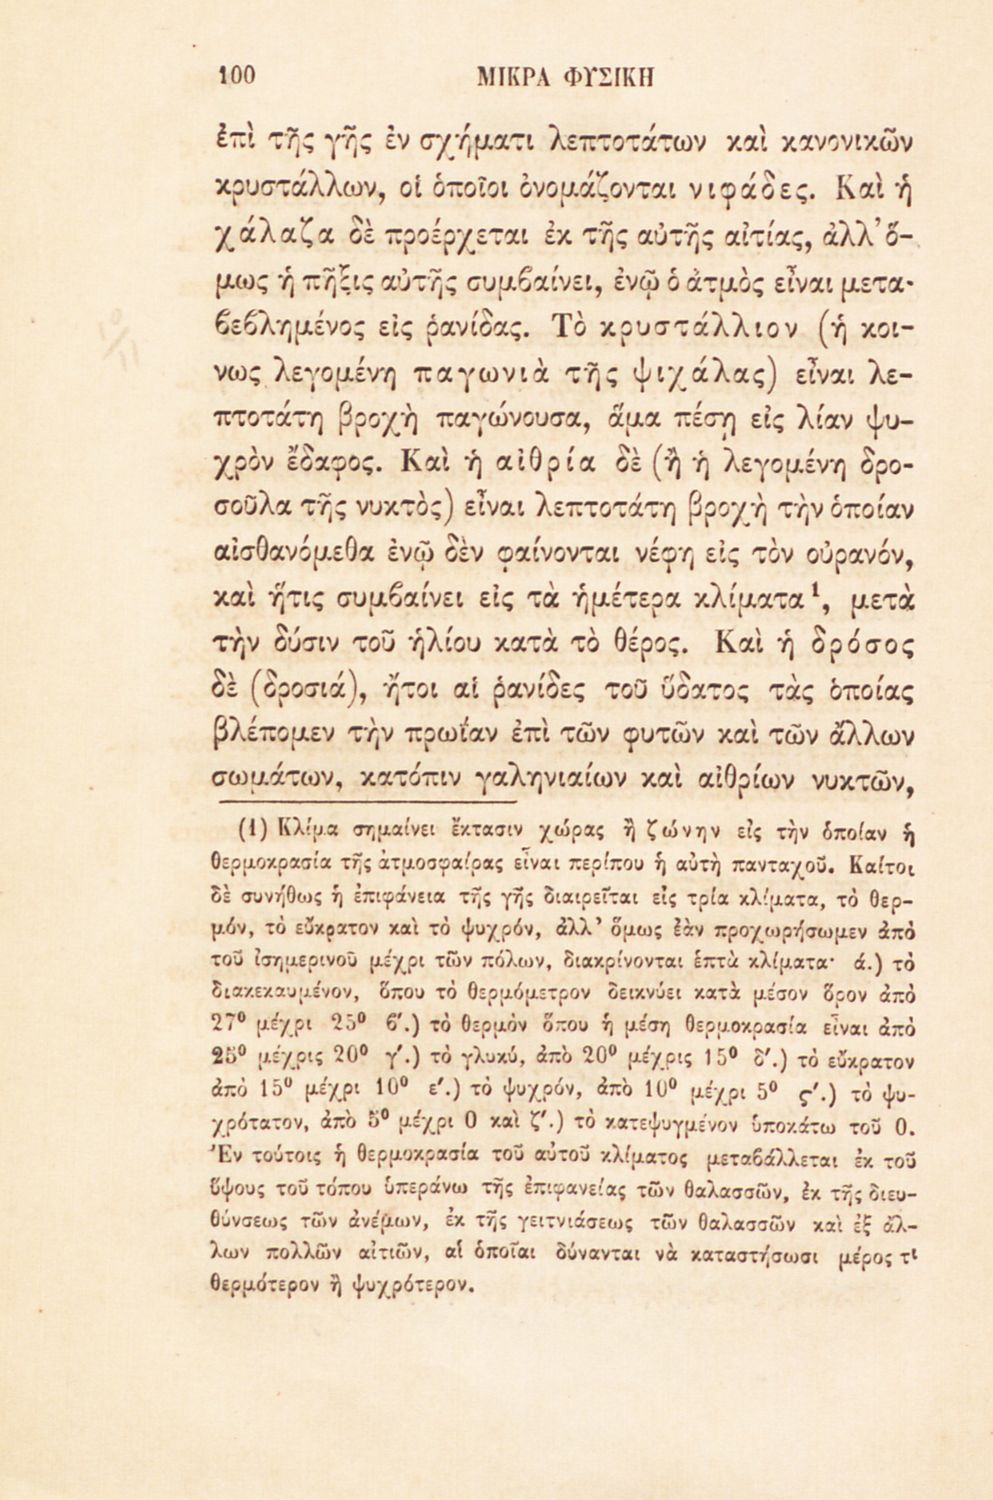 100 ΜΙΚΡΑ ΦΥΣΙΚΗ
ἐπὶ τῆς γῆς ἐν σχήματι λεπτοτάτων καὶ κανονικῶν
κρυστάλλων, οἱ ὁποῖοι ὀνομάζονται νιφάδες. Καὶ ἡ
χάλαζα δὲ προέρχεται ἐκ τῆς αὐτῆς αἰτίας, ἀλλ' ὅ-
μως ἡ πῆξις αὐτῆς συμβαίνει, ἐνῷ ὁ ἀτμὸς εἶναι μετα-
βεβλημένος εἰς ῥανίδας. Τὸ κρυστάλλιον (ἡ κοι-
νως λεγομένη παγωνιὰ τῆς ψιχάλας) εἶναι λε-
πτοτάτη βροχὴ παγώνουσα, ἅμα πέσῃ εἰς λίαν ψυ-
χρὸν ἔδαφος. Καὶ ἡ αἰθρία δὲ (ἢ ἡ λεγομένη δρο-
σοῦλα τῆς νυκτὸς) εἶναι λεπτοτάτη βροχὴ τὴν ὁποίαν
αἰσθανόμεθα ἐνῷ δὲν φαίνονται νέφη εἰς τὸν οὐρανόν,
καὶ ἥτις συμβαίνει εἰς τὰ ἡμέτερα κλίματα¹, μετὰ
τὴν δύσιν τοῦ ἡλίου κατὰ τὸ θέρος. Καὶ ἡ δρόσος
δὲ (δροσιά), ἤτοι αἱ ῥανίδες τοῦ ὕδατος τὰς ὁποίας
βλέπομεν τὴν πρωΐαν ἐπὶ τῶν φυτῶν καὶ τῶν ἄλλων
σωμάτων, κατόπιν γαληνιαίων καὶ αἰθρίων νυκτῶν,
(1) Κλίμα σημαίνει ἔκτασιν χώρας ἢ ζώνην εἰς τὴν ὁποίαν ἡ
θερμοκρασία τῆς ἀτμοσφαίρας εἶναι περίπου ἡ αὐτὴ πανταχοῦ. Καίτοι
δὲ συνήθως ἡ ἐπιφάνεια τῆς γῆς διαιρεῖται εἰς τρία κλίματα, τὸ θερ-
μόν, τὸ εὔκρατον καὶ τὸ ψυχρόν, ἀλλ' ὅμως ἐὰν προχωρήσωμεν ἀπὸ
τοῦ ἰσημερινοῦ μέχρι τῶν πόλων, διακρίνονται ἑπτὰ κλίματα· ά.) τὸ
διακεκαυμένον, ὅπου τὸ θερμόμετρον δεικνύει κατὰ μέσον ὅρον ἀπὸ
27⁰ μέχρι 25⁰ β'.) τὸ θερμὸν ὅπου ἡ μέση θερμοκρασία εἶναι ἀπὸ
25⁰ μέχρις 20⁰ γ'.) τὸ γλυκύ, ἀπὸ 20⁰ μέχρις 15⁰ δ'.) τὸ εὔκρατον
ἀπὸ 15⁰ μέχρι 10⁰ ε'.) τὸ ψυχρόν, ἀπὸ 10⁰ μέχρι 5⁰ ς'.) τὸ ψυ-
χρότατον, ἀπὸ 5⁰ μέχρι 0 καὶ ζ'.) τὸ κατεψυγμένον ὑποκάτω τοῦ 0.
Ἐν τούτοις ἡ θερμοκρασία τοῦ αὐτοῦ κλίματος μεταβάλλεται ἐκ τοῦ
ὕψους τοῦ τόπου ὑπεράνω τῆς ἐπιφανείας τῶν θαλασσῶν, ἐκ τῆς διευ-
θύνσεως τῶν ἀνέμων, ἐκ τῆς γειτνιάσεως τῶν θαλασσῶν καὶ ἐξ ἄλ-
λων πολλῶν αἰτιῶν, αἱ ὁποῖαι δύνανται νὰ καταστήσωσι μέρος τι
θερμότερον ἢ ψυχρότερον.